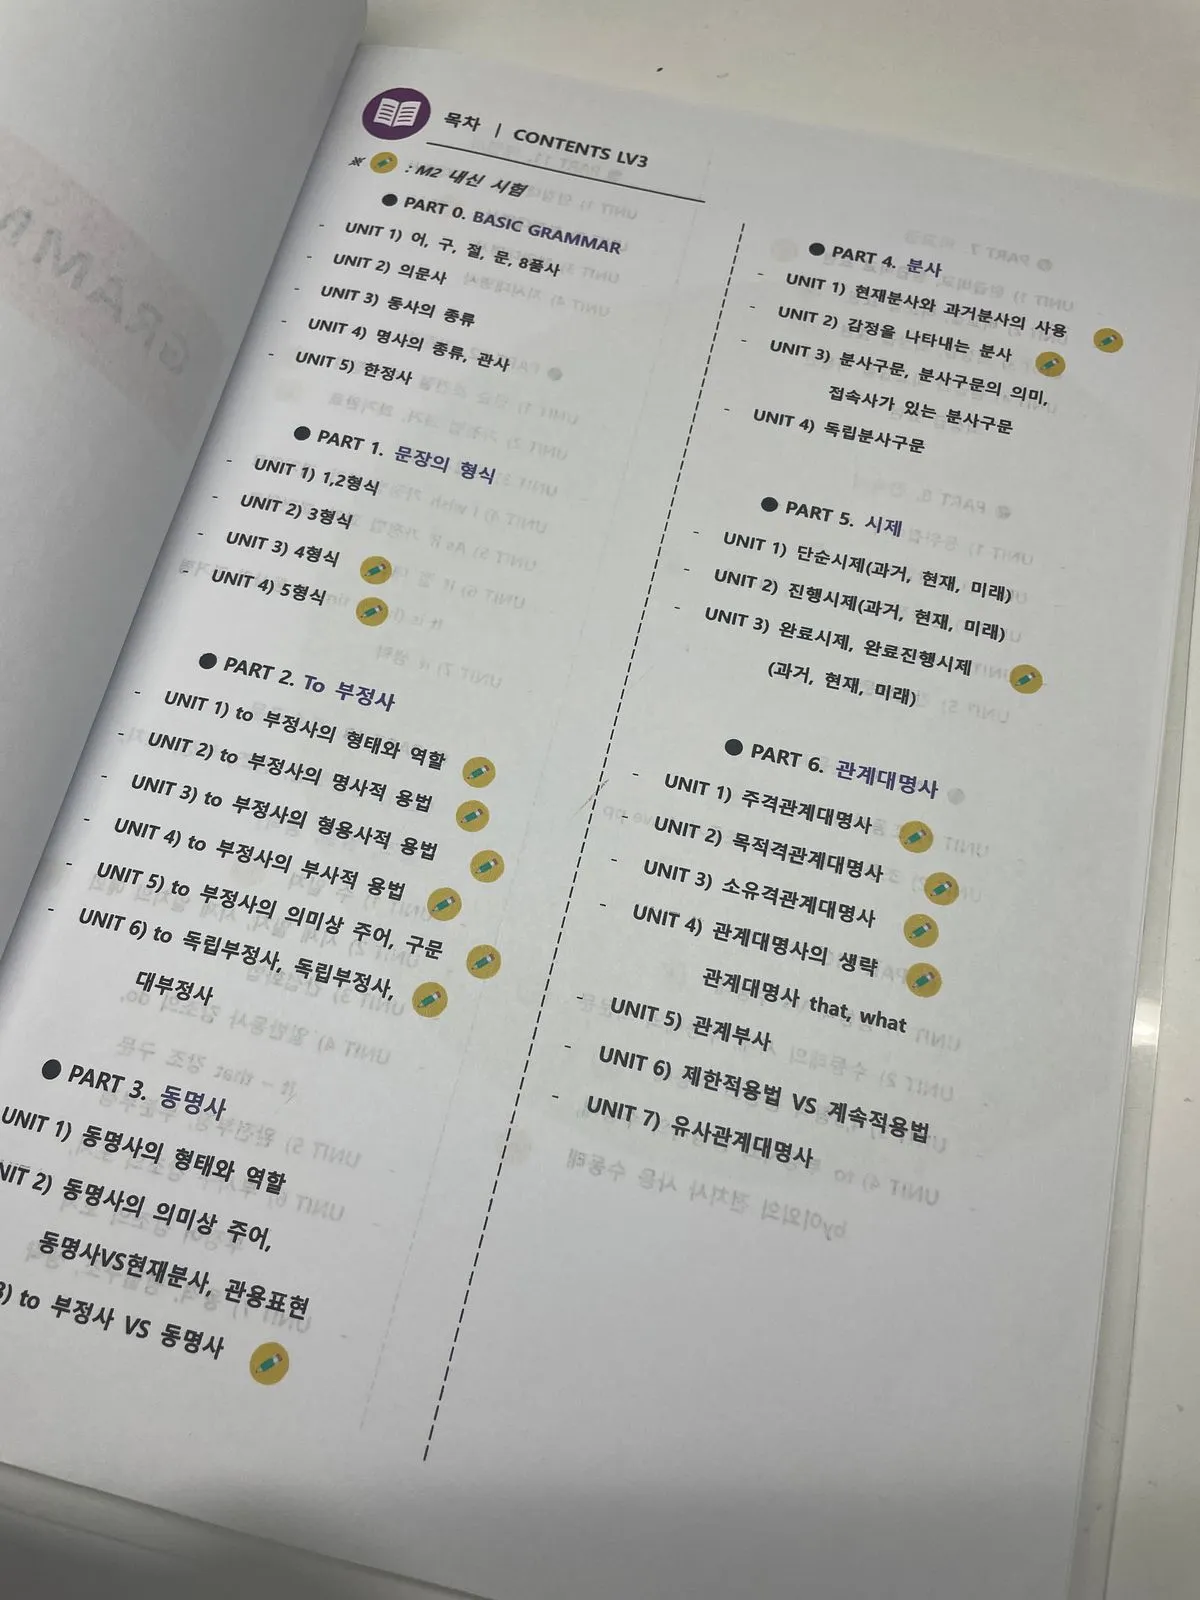 목차 | CONTENTS LV3
※ : M2 내신 시험
● PART 0. BASIC GRAMMAR
- UNIT 1) 어, 구, 절, 문, 8품사
- UNIT 2) 의문사
- UNIT 3) 동사의 종류
- UNIT 4) 명사의 종류, 관사
- UNIT 5) 한정사
● PART 1. 문장의 형식
- UNIT 1) 1,2형식
- UNIT 2) 3형식
- UNIT 3) 4형식
- UNIT 4) 5형식
● PART 2. To 부정사
- UNIT 1) to 부정사의 형태와 역할
- UNIT 2) to 부정사의 명사적 용법
- UNIT 3) to 부정사의 형용사적 용법
- UNIT 4) to 부정사의 부사적 용법
- UNIT 5) to 부정사의 의미상 주어, 구문
- UNIT 6) to 독립부정사, 독립부정사,
대부정사
● PART 3. 동명사
UNIT 1) 동명사의 형태와 역할
NIT 2) 동명사의 의미상 주어,
동명사VS현재분사, 관용표현
3) to 부정사 VS 동명사
● PART 4. 분사
- UNIT 1) 현재분사와 과거분사의 사용
- UNIT 2) 감정을 나타내는 분사
- UNIT 3) 분사구문, 분사구문의 의미,
접속사가 있는 분사구문
- UNIT 4) 독립분사구문
● PART 5. 시제
- UNIT 1) 단순시제(과거, 현재, 미래)
- UNIT 2) 진행시제(과거, 현재, 미래)
- UNIT 3) 완료시제, 완료진행시제
(과거, 현재, 미래)
● PART 6. 관계대명사
- UNIT 1) 주격관계대명사
- UNIT 2) 목적격관계대명사
- UNIT 3) 소유격관계대명사
- UNIT 4) 관계대명사의 생략
관계대명사 that, what
- UNIT 5) 관계부사
- UNIT 6) 제한적용법 VS 계속적용법
- UNIT 7) 유사관계대명사